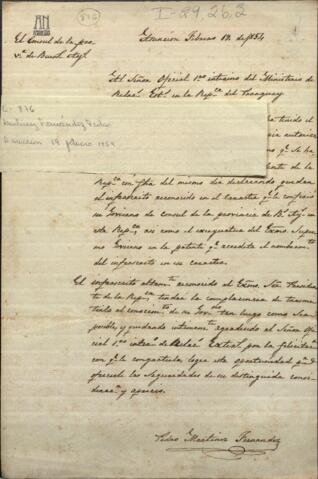 AN
876
I-29,26,2
El Consul de la pro
va. de Buens. Ays.
Asuncion Febrero 19. de 1854
Al Señor Oficial 1ro. interino del Ministerio de
Relacs. Exts. en la Repca. del Paraguay
C- 876
Martinez Fernández Pedro
Asunción 19 febrero 1854
tenido el
se ha
ente de la
Repca. con fha del mismo dia declarando quedar
el infrascrito reconocido en el caracter qe. le confirió
su Govierno de consul de la provincia de Bs. Ays. en
esta Repca., asi como el exequatur del Exmo. Supmo.
Govierno en la patente qe. acredita el nombramto.
del infrascrito en su caracter.
El infrascrito altamte. reconocido al Exmo. Sor. Presidente
de la Repca. tendrá la complacencia de trasmitirlo
al conocimto. de su Govno. tan luego como sea
posible, y quedando intimamte. agradecido al Señor Oficial
1ro. intrno. de Relacs. Exts. por la felicitacion
con qe. le congratula, logra esta oportunidad pa.
ofrecerle las seguridades de su distinguida consideracn.
y aprecio.
Pedro Martinez Fernandez